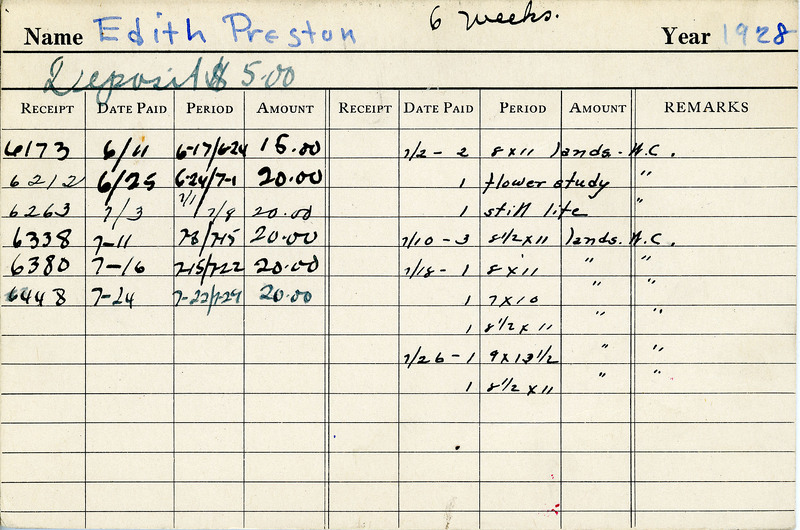 6 weeks.
Name Edith Preston Year 1928
Deposit $ 5.00
RECEIPT DATE PAID PERIOD AMOUNT RECEIPT DATE PAID PERIOD AMOUNT REMARKS
6173 6/11 6-17/6-24 15.00 7/2 - 2 8 x 11 lands. W.C.
6212 6/25 6-24/7-1 20.00 1 flower study "
6263 7/3 7/1 7/8 20.00 1 still life "
6338 7-11 7-8/7-15 20.00 7/10 - 3 8 1/2 x 11 lands. W.C.
6380 7-16 7-15/7-22 20.00 7/18 - 1 8 x 11 " "
6448 7-24 7-22/7-29 20.00 1 7 x 10 " "
1 8 1/2 x 11 " "
7/26 - 1 9 x 13 1/2 " "
1 8 1/2 x 11 " "